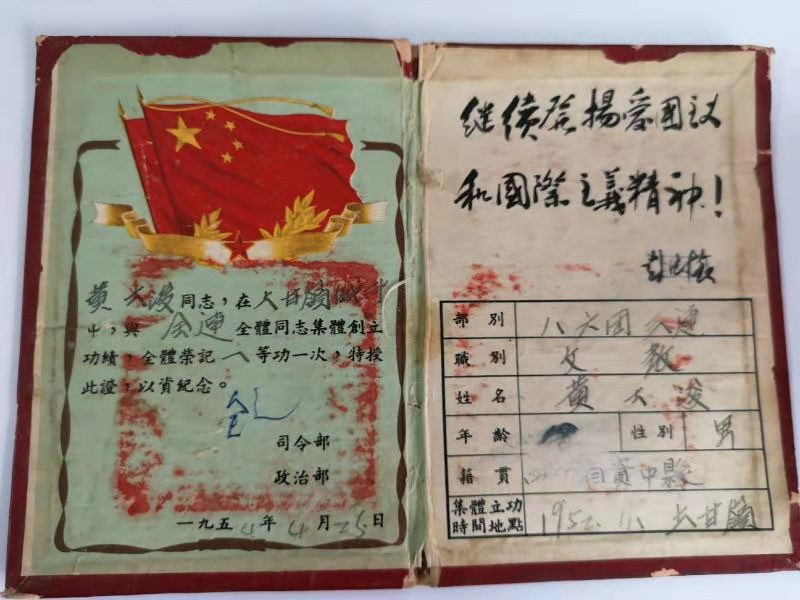 黄大浚同志，在大甘嶺戰斗
中，與全連全體同志集體創立
功績，全體榮記 等功一次，特授
此證，以資紀念。
司令部
政治部
一九五四年4月25日
继续發揚愛国主义
和國際主義精神！
部别 八六团 連
職别 文教
姓名 黄大浚
年齡 性别 男
籍貫 資中縣
集體立功時間地點 1952. 大甘嶺